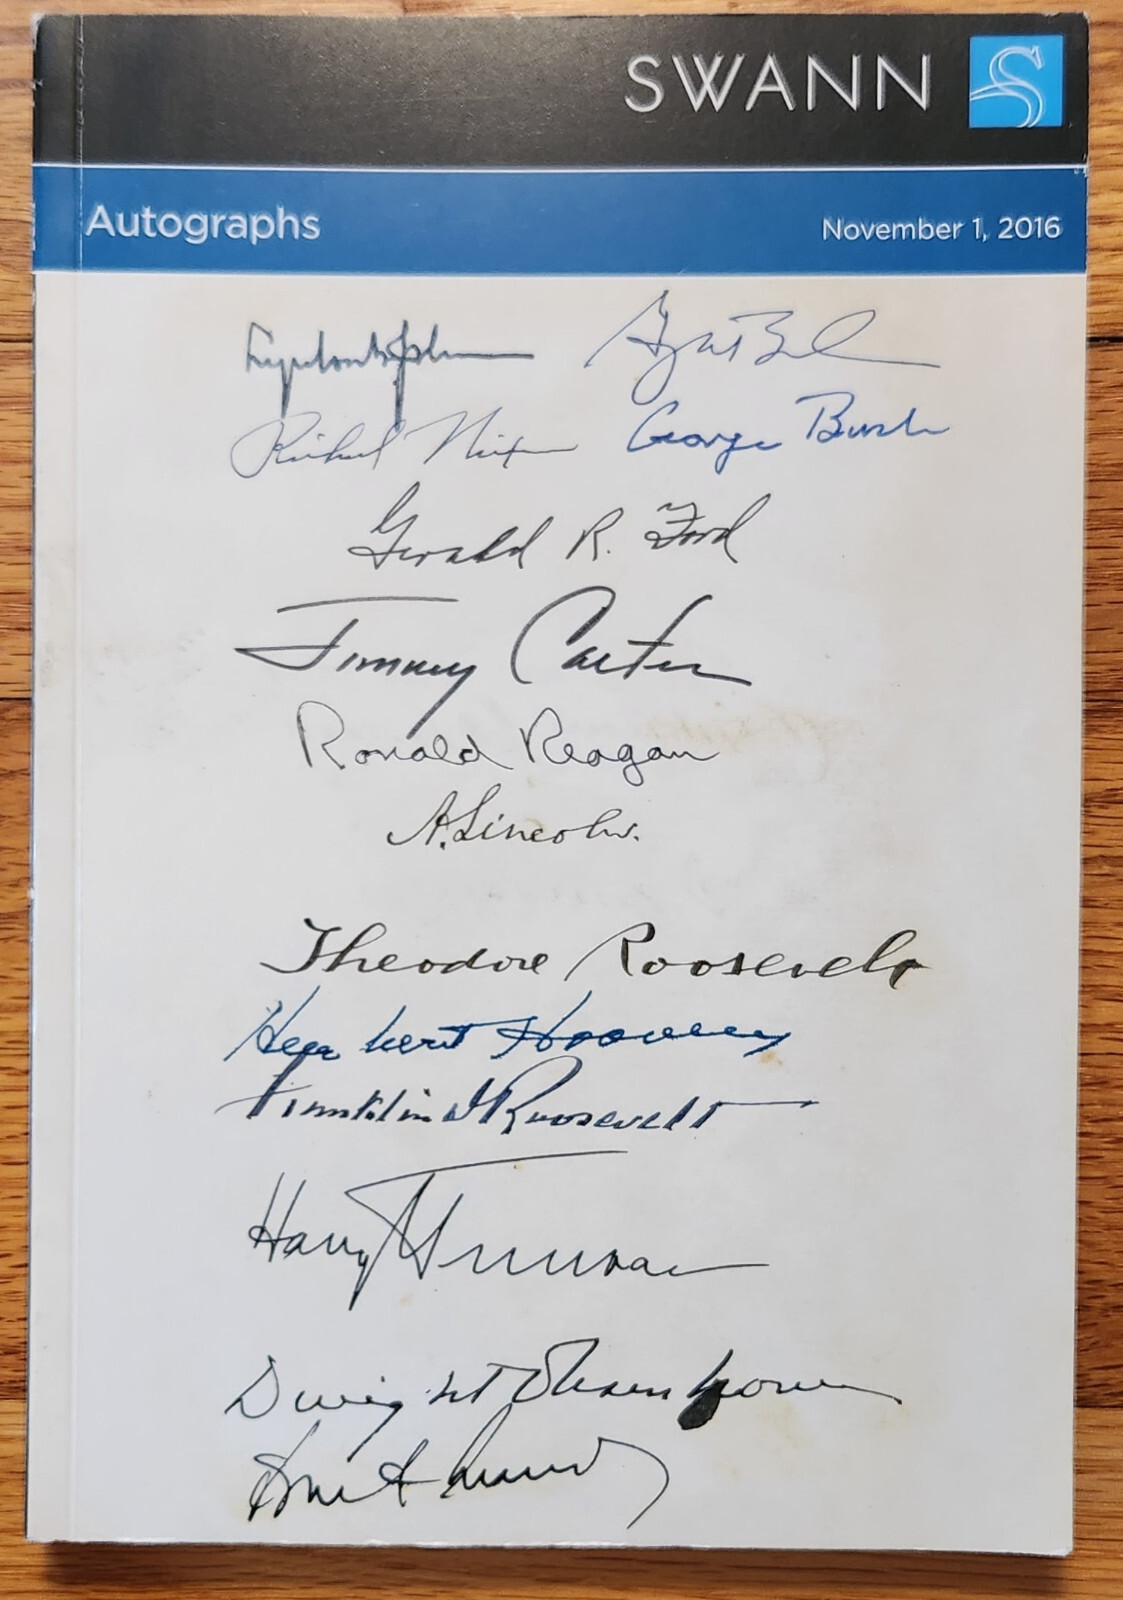 SWANN
Autographs November 1, 2016
Lyndon B Johnson
Richard Nixon George Bush
Gerald R. Ford
Jimmy Carter
Ronald Reagan
A. Lincoln.
Theodore Roosevelt
Herbert Hoover
Franklin D Roosevelt
Harry Truman
Dwight D Eisenhower